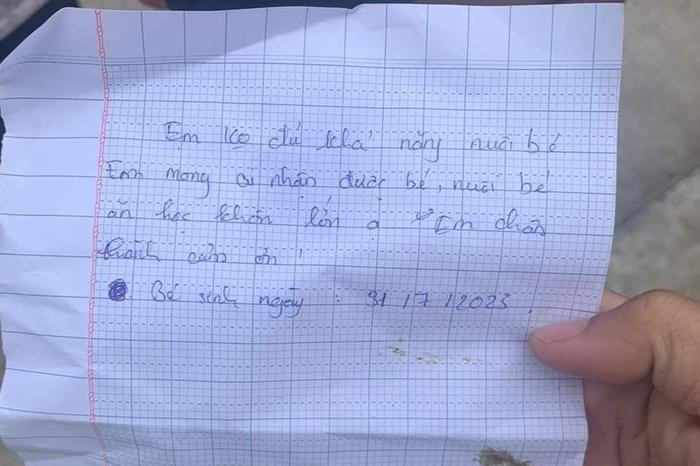 Em ko đủ khả năng nuôi bé.
Em mong ai nhận được bé, nuôi bé
ăn học khôn lớn ạ Em chân
thành cảm ơn!
Bé sinh ngày : 31/7/2023.